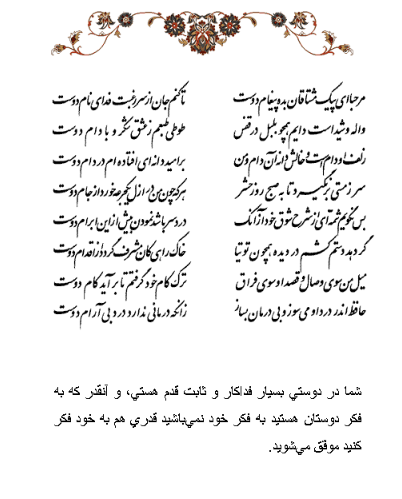 مرحبا ای پیک مشتاقان بده پیغام دوست تا کنم جان از سر رغبت فدای نام دوست
واله و شیداست دایم همچو بلبل در قفس طوطی طبعم ز عشق شکر و بادام دوست
زلف او دام است و خالش دانه آن دام و من بر امید دانه‌ای افتاده‌ام در دام دوست
سر ز مستی برنگیرد تا به صبح روز حشر هر که چون من در ازل یک جرعه خورد از جام دوست
بس نگویم شمه‌ای از شرح شوق خود از آنک دردسر باشد نمودن بیش از این ابرام دوست
گر دهد دستم کشم در دیده همچون توتیا خاک راهی کان مشرف گردد از اقدام دوست
میل من سوی وصال و قصد او سوی فراق ترک کام خود گرفتم تا برآید کام دوست
حافظ اندر درد او می‌سوز و بی‌درمان بساز زانکه درمانی ندارد درد بی‌آرام دوست
شما در دوستي بسيار فداكار و ثابت قدم هستي، و آنقدر كه به
فكر دوستان هستيد به فكر خود نمي‌باشيد قدري هم به خود فكر
كنيد موفق مي‌شويد.